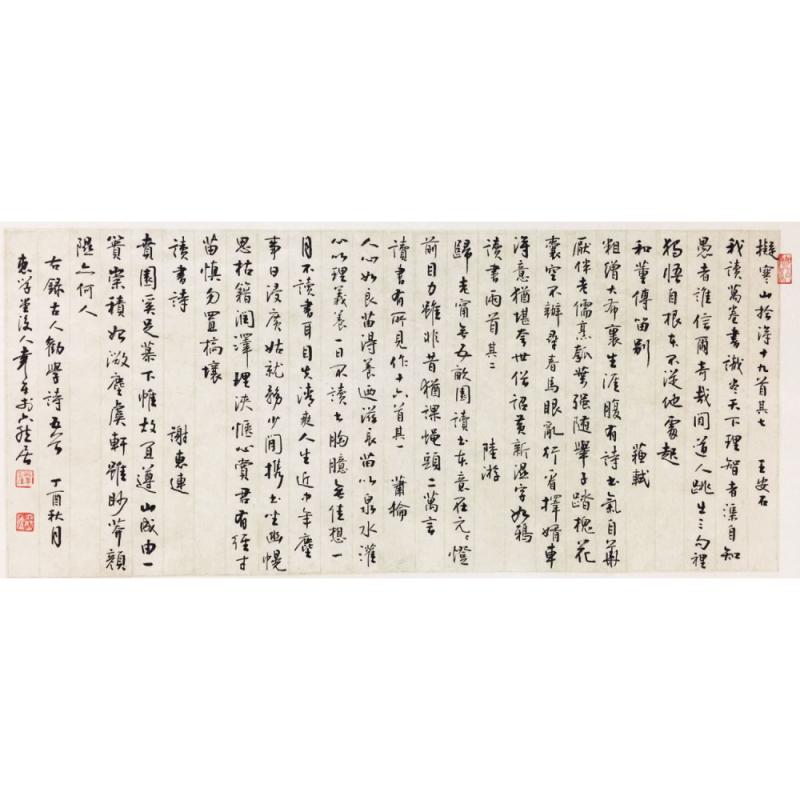 擬寒山拾得十九首其七 王安石
我讀萬卷書識盡天下理智者渠自知
愚者誰信爾奇哉閒道人跳出三句裡
獨悟自根本不從他處起
和董傳留別 蘇軾
粗繒大布裹生涯腹有詩書氣自華
厭伴老儒烹瓠葉強隨舉子踏槐花
囊空不辦尋春馬眼亂行看擇婿車
得意猶堪夸世俗詔黃新濕字如鴉
讀書兩首其二 陸游
歸老寧無五畝園讀書本意在元元燈
前目力雖非昔猶課蠅頭二萬言
讀書有所見作十六首其一 蕭掄
人心如良苗得養迺滋長苗以泉水灌
心以理義養一日不讀書胸臆無佳想一
月不讀書耳目失清爽人生近中年塵
事日浸廣姑就務少閒攜書坐幽幌
思枯籍潤澤理浹愜心賞君有徑寸
苗慎勿置槁壤
讀書詩 謝惠連
賁園奚足慕下帷故宜遵山成由一
簣崇積始微塵虞軒雖眇莽顏
隰亦何人
古錄古人勸學詩五首 丁酉秋月